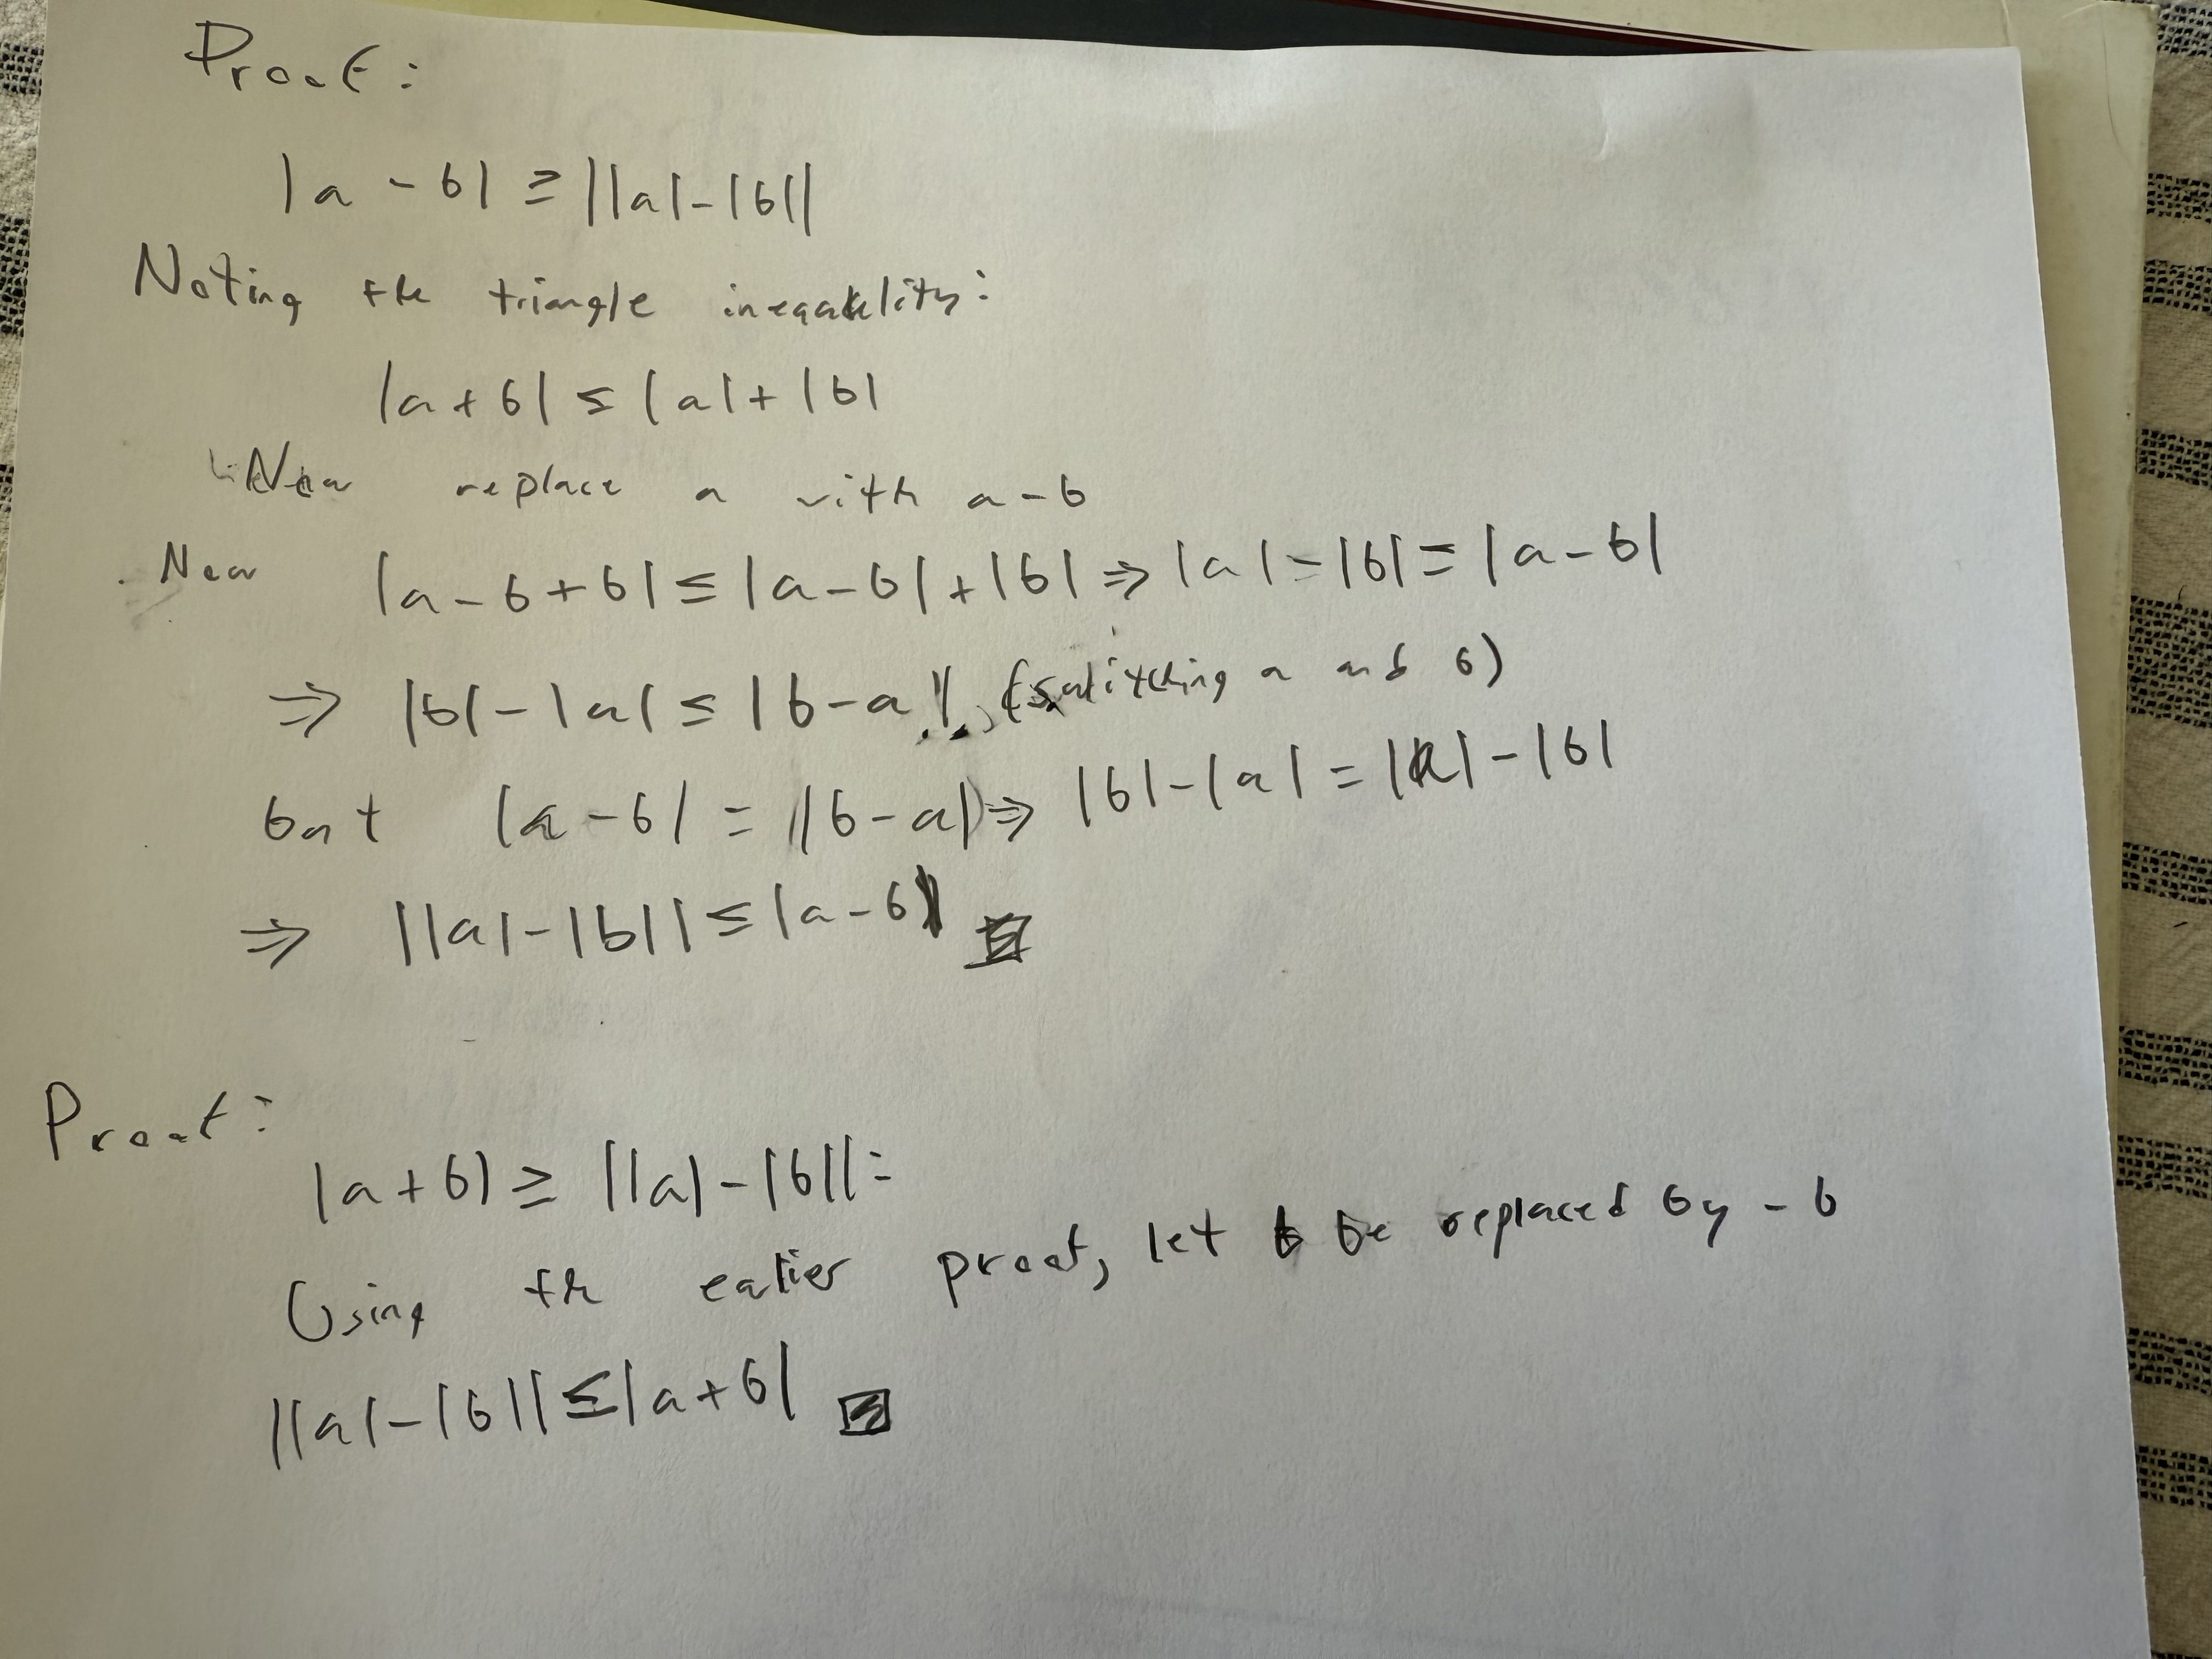 Proof:
|a - b| ≥ ||a|-|b||
Noting the triangle inequality:
|a+b| ≤ |a|+|b|
Now replace a with a-b
Now |a-b+b| ≤ |a-b|+|b| ⇒ |a|-|b| ≤ |a-b|
⇒ |b|-|a| ≤ |b-a|, (switching a and b)
but |a-b| = |b-a| ⇒ |b|-|a| = |a|-|b|
⇒ ||a|-|b|| ≤ |a-b|
Proof:
|a+b| ≥ ||a|-|b||:
Using the earlier proof, let b be replaced by -b
||a|-|b|| ≤ |a+b|